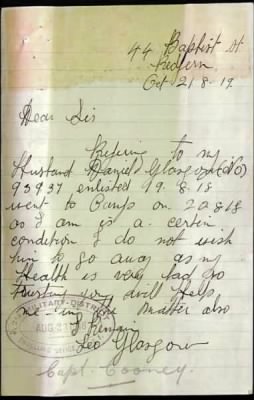 44 Baptist St
Redfern
Oct 21 8.19.
Dear Sir
Refering to my
Husband Daniel Glasgow (No)
93937 enlisted 19.8.18
went to Camp on 20818
as I am in a certin
condition I do not wish
him to go away as my
Health is very bad so
trusting you will Help
me in the matter also
I Remain
Glasgow
Capt. Cooney.
MILITARY DISTRICT
AUG 23